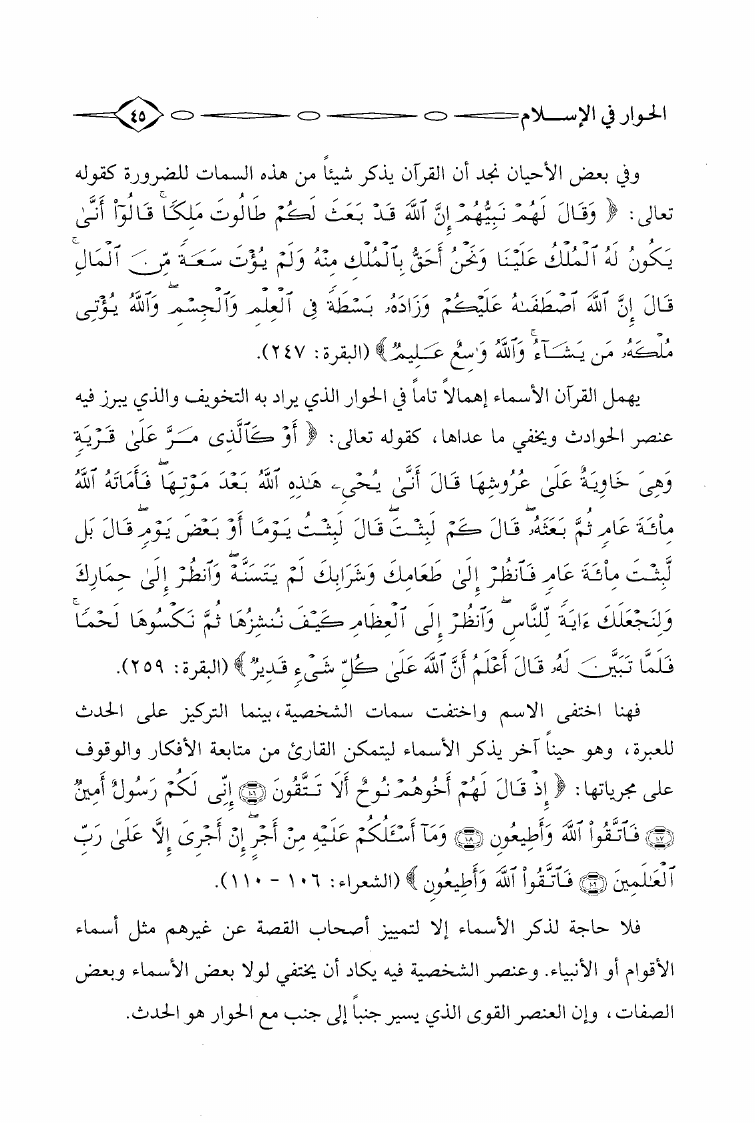 الحوار في الإسـلام ٤٥
وفي بعض الأحيان نجد أن القرآن يذكر شيئاً من هذه السمات للضرورة كقوله
تعالى: ﴿ وَقَالَ لَهُمْ نَبِيُّهُمْ إِنَّ ٱللَّهَ قَدْ بَعَثَ لَكُمْ طَالُوتَ مَلِكًاۚ قَالُوٓا۟ أَنَّىٰ
يَكُونُ لَهُ ٱلْمُلْكُ عَلَيْنَا وَنَحْنُ أَحَقُّ بِٱلْمُلْكِ مِنْهُ وَلَمْ يُؤْتَ سَعَةً مِّنَ ٱلْمَالِۚ
قَالَ إِنَّ ٱللَّهَ ٱصْطَفَىٰهُ عَلَيْكُمْ وَزَادَهُۥ بَسْطَةً فِى ٱلْعِلْمِ وَٱلْجِسْمِۖ وَٱللَّهُ يُؤْتِى
مُلْكَهُۥ مَن يَشَآءُۚ وَٱللَّهُ وَٰسِعٌ عَلِيمٌ ﴾ (البقرة: ٢٤٧).
يهمل القرآن الأسماء إهمالاً تاماً في الحوار الذي يراد به التخويف والذي يبرز فيه
عنصر الحوادث ويخفي ما عداها، كقوله تعالى: ﴿ أَوْ كَٱلَّذِى مَرَّ عَلَىٰ قَرْيَةٍ
وَهِىَ خَاوِيَةٌ عَلَىٰ عُرُوشِهَا قَالَ أَنَّىٰ يُحْىِۦ هَٰذِهِ ٱللَّهُ بَعْدَ مَوْتِهَاۖ فَأَمَاتَهُ ٱللَّهُ
مِا۟ئَةَ عَامٍ ثُمَّ بَعَثَهُۥۖ قَالَ كَمْ لَبِثْتَۖ قَالَ لَبِثْتُ يَوْمًا أَوْ بَعْضَ يَوْمٍۖ قَالَ بَل
لَّبِثْتَ مِا۟ئَةَ عَامٍ فَٱنظُرْ إِلَىٰ طَعَامِكَ وَشَرَابِكَ لَمْ يَتَسَنَّهْۖ وَٱنظُرْ إِلَىٰ حِمَارِكَ
وَلِنَجْعَلَكَ ءَايَةً لِّلنَّاسِۖ وَٱنظُرْ إِلَى ٱلْعِظَامِ كَيْفَ نُنشِزُهَا ثُمَّ نَكْسُوهَا لَحْمًاۚ
فَلَمَّا تَبَيَّنَ لَهُۥ قَالَ أَعْلَمُ أَنَّ ٱللَّهَ عَلَىٰ كُلِّ شَىْءٍ قَدِيرٌ ﴾ (البقرة: ٢٥٩).
فهنا اختفى الاسم واختفت سمات الشخصية، بينما التركيز على الحدث
للعبرة، وهو حيناً آخر يذكر الأسماء ليتمكن القارئ من متابعة الأفكار والوقوف
على مجرياتها: ﴿ إِذْ قَالَ لَهُمْ أَخُوهُمْ نُوحٌ أَلَا تَتَّقُونَ ١٠٦ إِنِّى لَكُمْ رَسُولٌ أَمِينٌ
١٠٧ فَٱتَّقُوا۟ ٱللَّهَ وَأَطِيعُونِ ١٠٨ وَمَآ أَسْـَٔلُكُمْ عَلَيْهِ مِنْ أَجْرٍۖ إِنْ أَجْرِىَ إِلَّا عَلَىٰ رَبِّ
ٱلْعَٰلَمِينَ ١٠٩ فَٱتَّقُوا۟ ٱللَّهَ وَأَطِيعُونِ ﴾ (الشعراء: ١٠٦ - ١١٠).
فلا حاجة لذكر الأسماء إلا لتمييز أصحاب القصة عن غيرهم مثل أسماء
الأقوام أو الأنبياء. وعنصر الشخصية فيه يكاد أن يختفي لولا بعض الأسماء وبعض
الصفات، وإن العنصر القوى الذي يسير جنباً إلى جنب مع الحوار هو الحدث.